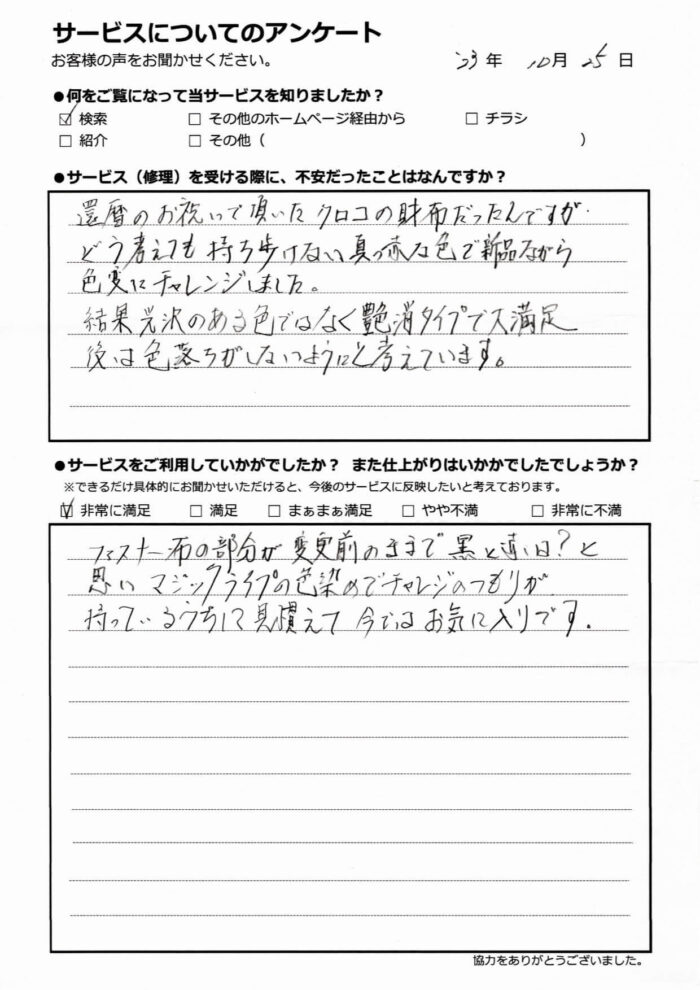 サービスについてのアンケート
お客様の声をお聞かせください。
'23 年 10 月 25 日
●何をご覧になって当サービスを知りましたか？
☑ 検索 □ その他のホームページ経由から □ チラシ
□ 紹介 □ その他（ ）
●サービス（修理）を受ける際に、不安だったことはなんですか？
還暦のお祝いで頂いたクロコの財布だったんですが、
どう考えても持ち歩けない真っ赤な色で新品ながら
色変にチャレンジしました。
結果光沢のある色ではなく艶消タイプで大満足
後は色落ちがしないようにと考えています。
●サービスをご利用していかがでしたか？ また仕上がりはいかかでしたでしょうか？
※できるだけ具体的にお聞かせいただけると、今後のサービスに反映したいと考えております。
☑ 非常に満足 □ 満足 □ まぁまぁ満足 □ やや不満 □ 非常に不満
ファスナー布の部分が変更前のままで黒と
思い マジックライプの色染めでチャレジのつもりが
持っているうちに見慣えて 今ではお気に入りです.
協力をありがとうございました。